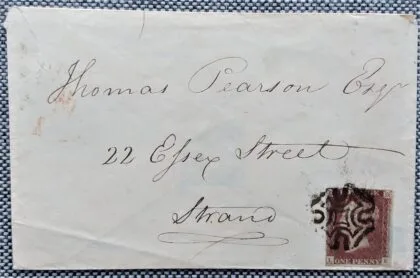 Thomas Pearson Esqr
22 Essex Street
Strand
ONE PENNY